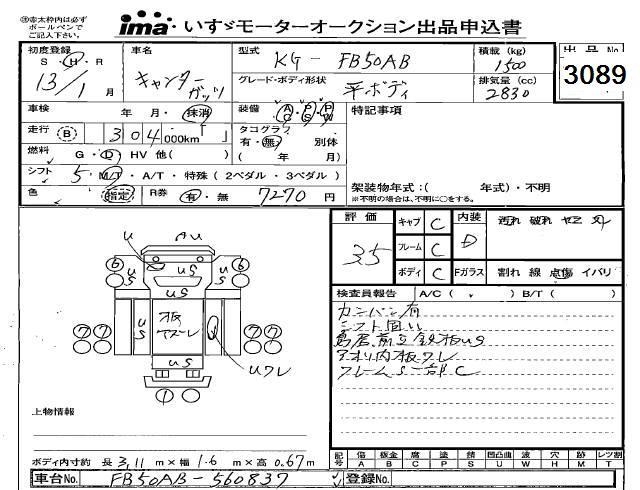 ㊟赤太枠内は必ず
ボールペンで
ご記入下さい。
ima いすゞモーターオークション出品申込書
初度登録
S・H・R
13/1 月
車名
キャンター
ガッツ
型式
KG-FB50AB
積載 (kg)
1500
グレード・ボディ形状
平ボディ
排気量 (cc)
2830
出品No
3089
車検 年 月・抹消
装備 A/C P/S P/W
特記事項
走行 B 304,000km
タコグラフ
有・無 別体
( 年 月)
燃料 G・D・HV 他( )
シフト 5 M/T・A/T・特殊(2ペダル・3ペダル)
架装物年式:( 年式)・不明
※不明の場合は、不明に○をする。
色 指定 R券 有・無 7270円
評価
3.5
キャブ C
フレーム C
ボディ C
内装
D
Fガラス
汚れ 破れ
割れ 線 点傷 イバリ
検査員報告 A/C ( ) B/T ( )
カンバン有
シフト固い
鳥居前立鉄板US
アオリ内板ワレ
フレームS一部C
U AU
6 US US US 6
US 板 US
7 7 7 7
US
Uワレ
1
上物情報
ボディ内寸約 長 3.11 m×幅 1.6 m×高 0.67m
記号
傷 A
板金 B
腐 C
塗 P
錆 S
凹凸曲 U
波 W
穴 H
補跡 M
レツ割 T
車台No. FB50AB-560837
登録No.